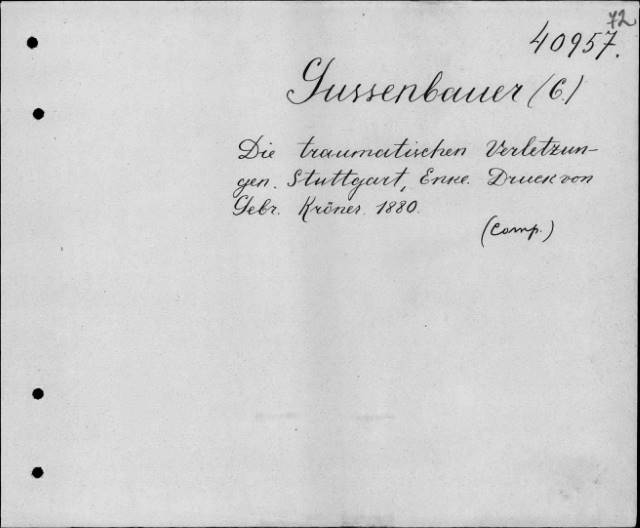 72
40957.
Gussenbauer (C.)
Die traumatischen Verletzun-
gen. Stuttgart, Enke. Druck von
Gebr. Kröner. 1880.
(Comp.)